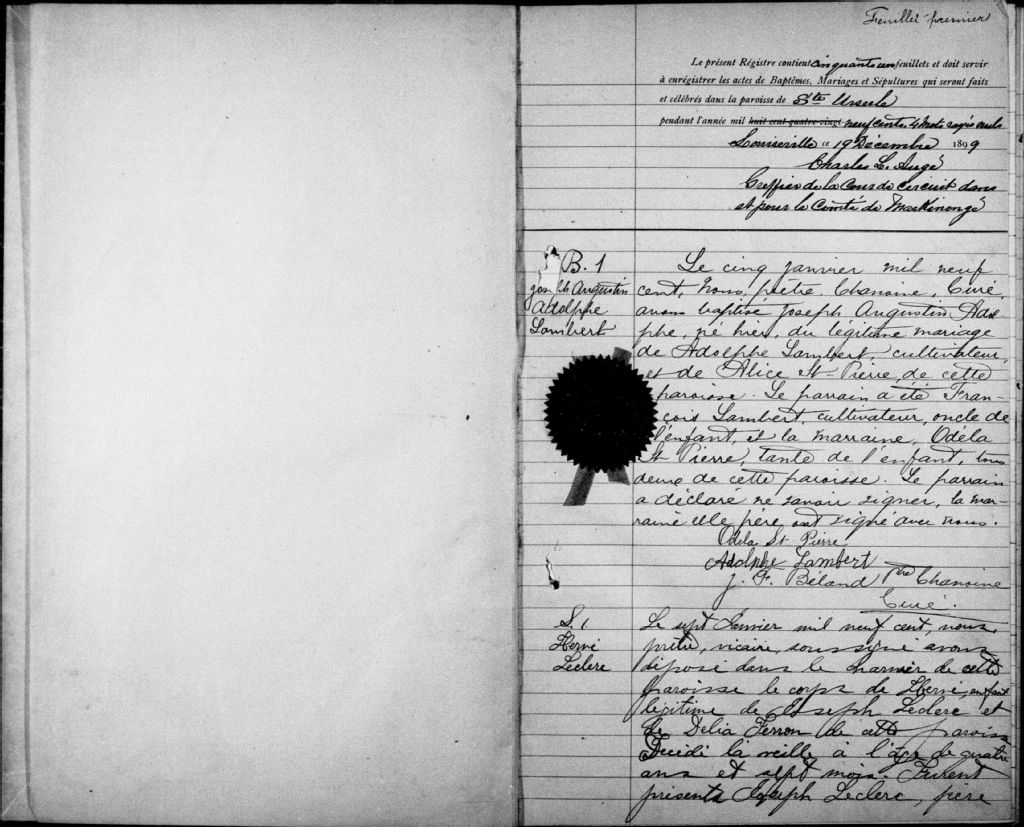 Feuillet premier
Le présent Régistre contient cinquante un feuillets et doit servir
à enrégistrer les actes de Baptêmes, Mariages et Sépultures qui seront faits
et célébrés dans la paroisse de Ste Ursule
pendant l'année mil huit cent quatre-vingt neuf cents. 4 Mots rayés nuls
Louiseville ce 19 Décembre 1899
Charles L. Augé
Greffier de la Cour de Circuit dans
et pour le Comté de Maskinongé
B. 1
Joseph Augustin
Adolphe
Lambert
Le cinq janvier mil neuf
cent, Nous, prêtre, Chanoine, Curé,
avons baptisé Joseph Augustin Adol
phe, né hier, du légitime mariage
de Adolphe Lambert, cultivateur,
et de Alice St-Pierre, de cette
paroisse. Le parrain a été Fran-
çois Lambert, cultivateur, oncle de
l'enfant, et la marraine, Odéla
St Pierre, tante de l'enfant, tous
deux de cette paroisse. Le parrain
a déclaré ne savoir signer, la mar-
raine et le père ont signé avec nous.
Odéla St Pierre.
Adolphe Lambert
J. F. Béland Ptre Chanoine
Curé.
S. 1
Hervé
Leclerc
Le sept Janvier mil neuf cent, nous,
prêtre, vicaire, soussigné avons
déposé dans le charnier de cette
paroisse le corps de Hervé, enfant
légitime de Joseph Leclerc et
de Delia Ferron de cette paroisse
Décédé la veille à l'âge de quatre
ans et sept mois. Furent
présents Joseph Leclerc, père